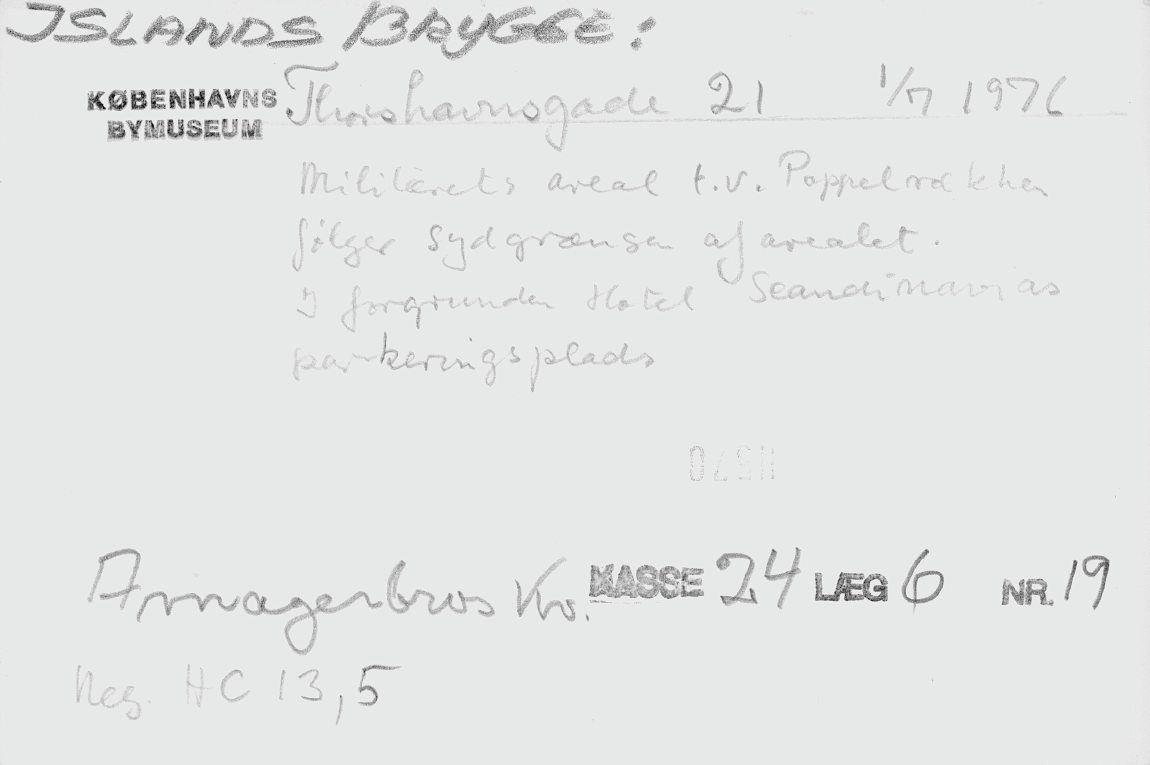 ISLANDS BRYGGE:
KØBENHAVNS
BYMUSEUM
Thorshavnsgade 21 1/7 1976
Militærets areal t.v. Poppelrækken
følger sydgrænsen af arealet.
I forgrunden Hotel Scandinavias
parkeringsplads
Amagerbros Kv. KASSE 24 LÆG 6 NR. 19
Neg. HC 13,5